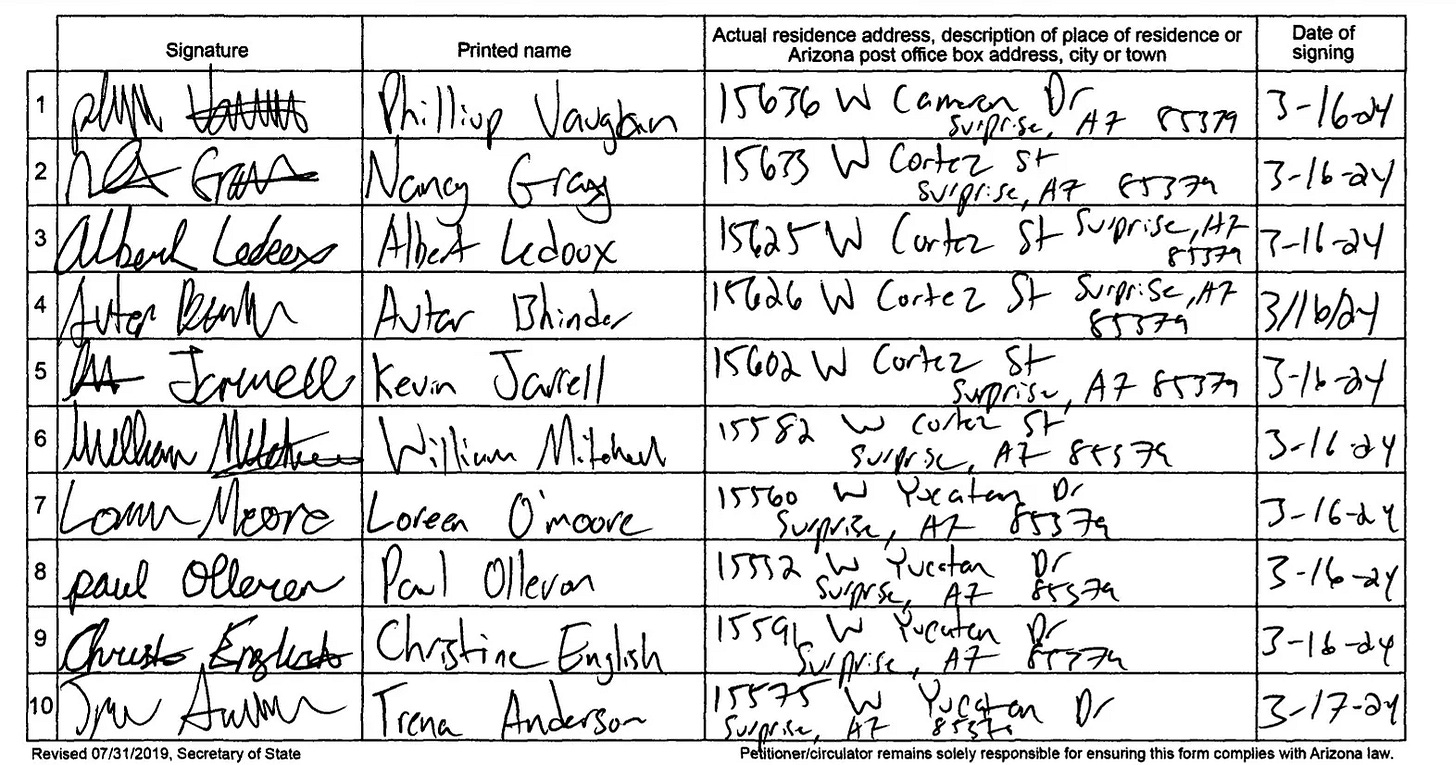 Signature Printed name Actual residence address, description of place of residence or Arizona post office box address, city or town Date of signing
1 Phillip Vaughan 15636 W Cameron Dr 3-16-24
Surprise, AZ 85379
2 Nancy Gray 15633 W Cortez St 3-16-24
Surprise, AZ 85379
3 Albert Ledoux Albert Ledoux 15625 W Cortez St Surprise, AZ 3-16-24
85379
4 Avtar Bhinder 15626 W Cortez St Surprise, AZ 3/16/24
85379
5 Jarrell Kevin Jarrell 15602 W Cortez St 3-16-24
Surprise, AZ 85379
6 William Mitchell William Mitchell 15582 W Cortez St 3-16-24
Surprise, AZ 85379
7 Moore Loreen O'moore 15560 W Yucatan Dr 3-16-24
Surprise, AZ 85379
8 paul Olleran Paul Olleron 15552 W Yucatan Dr 3-16-24
Surprise, AZ 85379
9 English Christine English 15591 W Yucatan Dr 3-16-24
Surprise, AZ 85379
10 Trena Anderson 15575 W Yucatan Dr 3-17-24
Surprise, AZ 85379
Revised 07/31/2019, Secretary of State Petitioner/circulator remains solely responsible for ensuring this form complies with Arizona law.